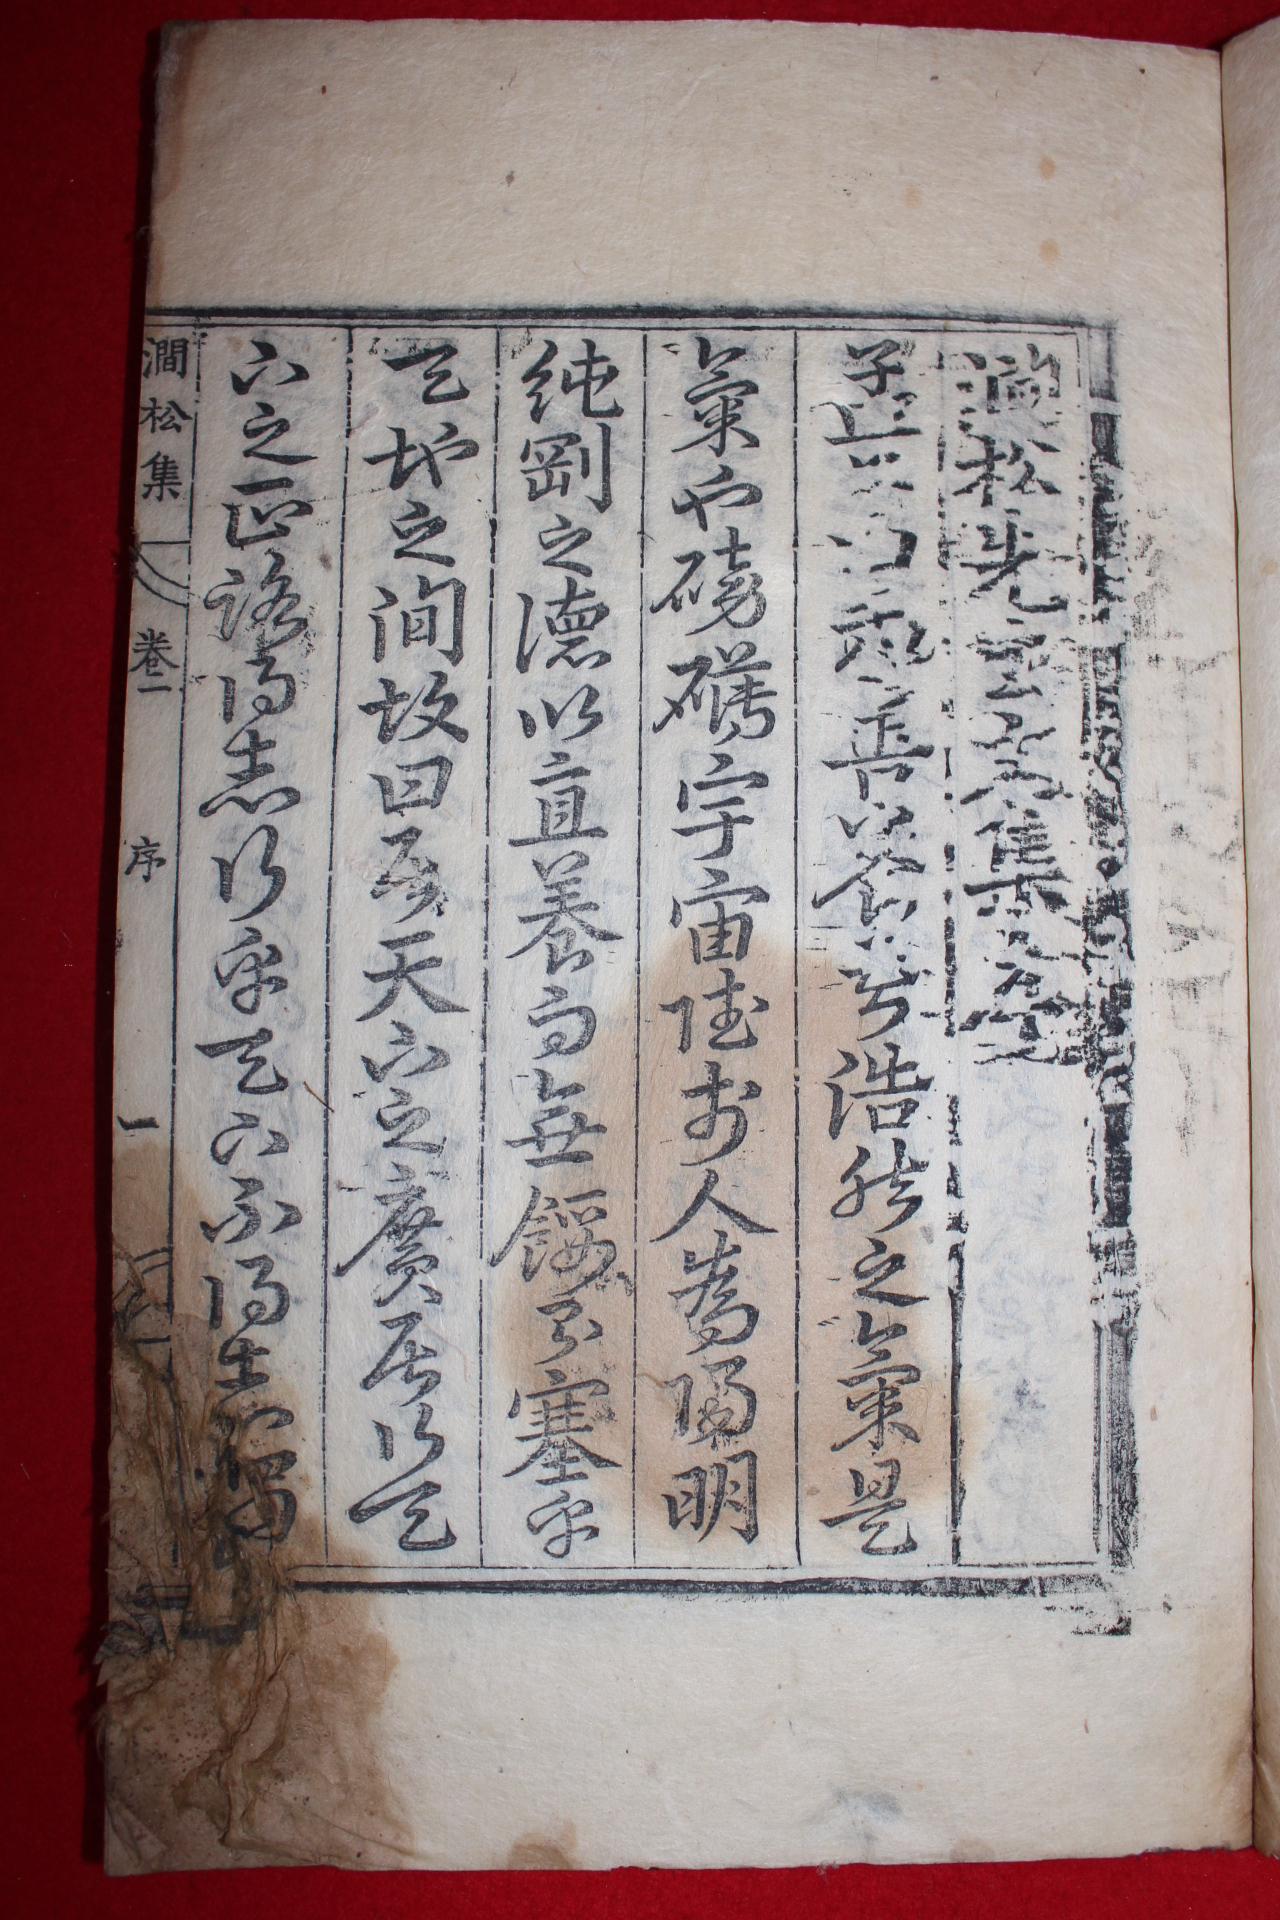 澗松先生文集序
子善養吾浩然之氣是
氣也磅礴宇宙於人爲陽明
純剛之德以直養而無餒則塞乎
天地之間故曰居天下之廣居行天
下之正路得志行乎天下不得志獨
澗松集 卷一 序 一